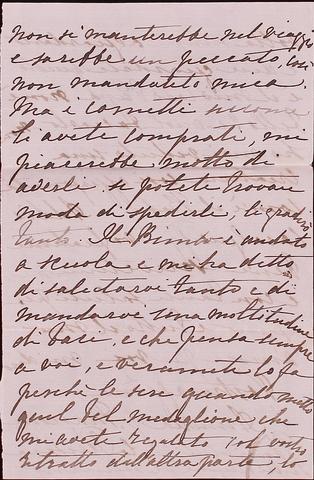 non si manterebbe nel viaggio
e sarebbe un peccato, così
non mandatelo mica.
Ma i cornetti siccome
li avete comprati, mi
piacerebbe molto di
averli, se potete trovare
modo di spedirli, li gradirò
tanto. Il Bimbo è andato
a scuola e mi ha detto
di salutarvi tanto e di
mandarvi una moltitudine
di baci, e che pensa sempre
a voi, e veramente lo fa
perchè le sere quando metto
quel bel medaglione che
mi avete regalato, col vostro
ritratto dall'altra parte, lo